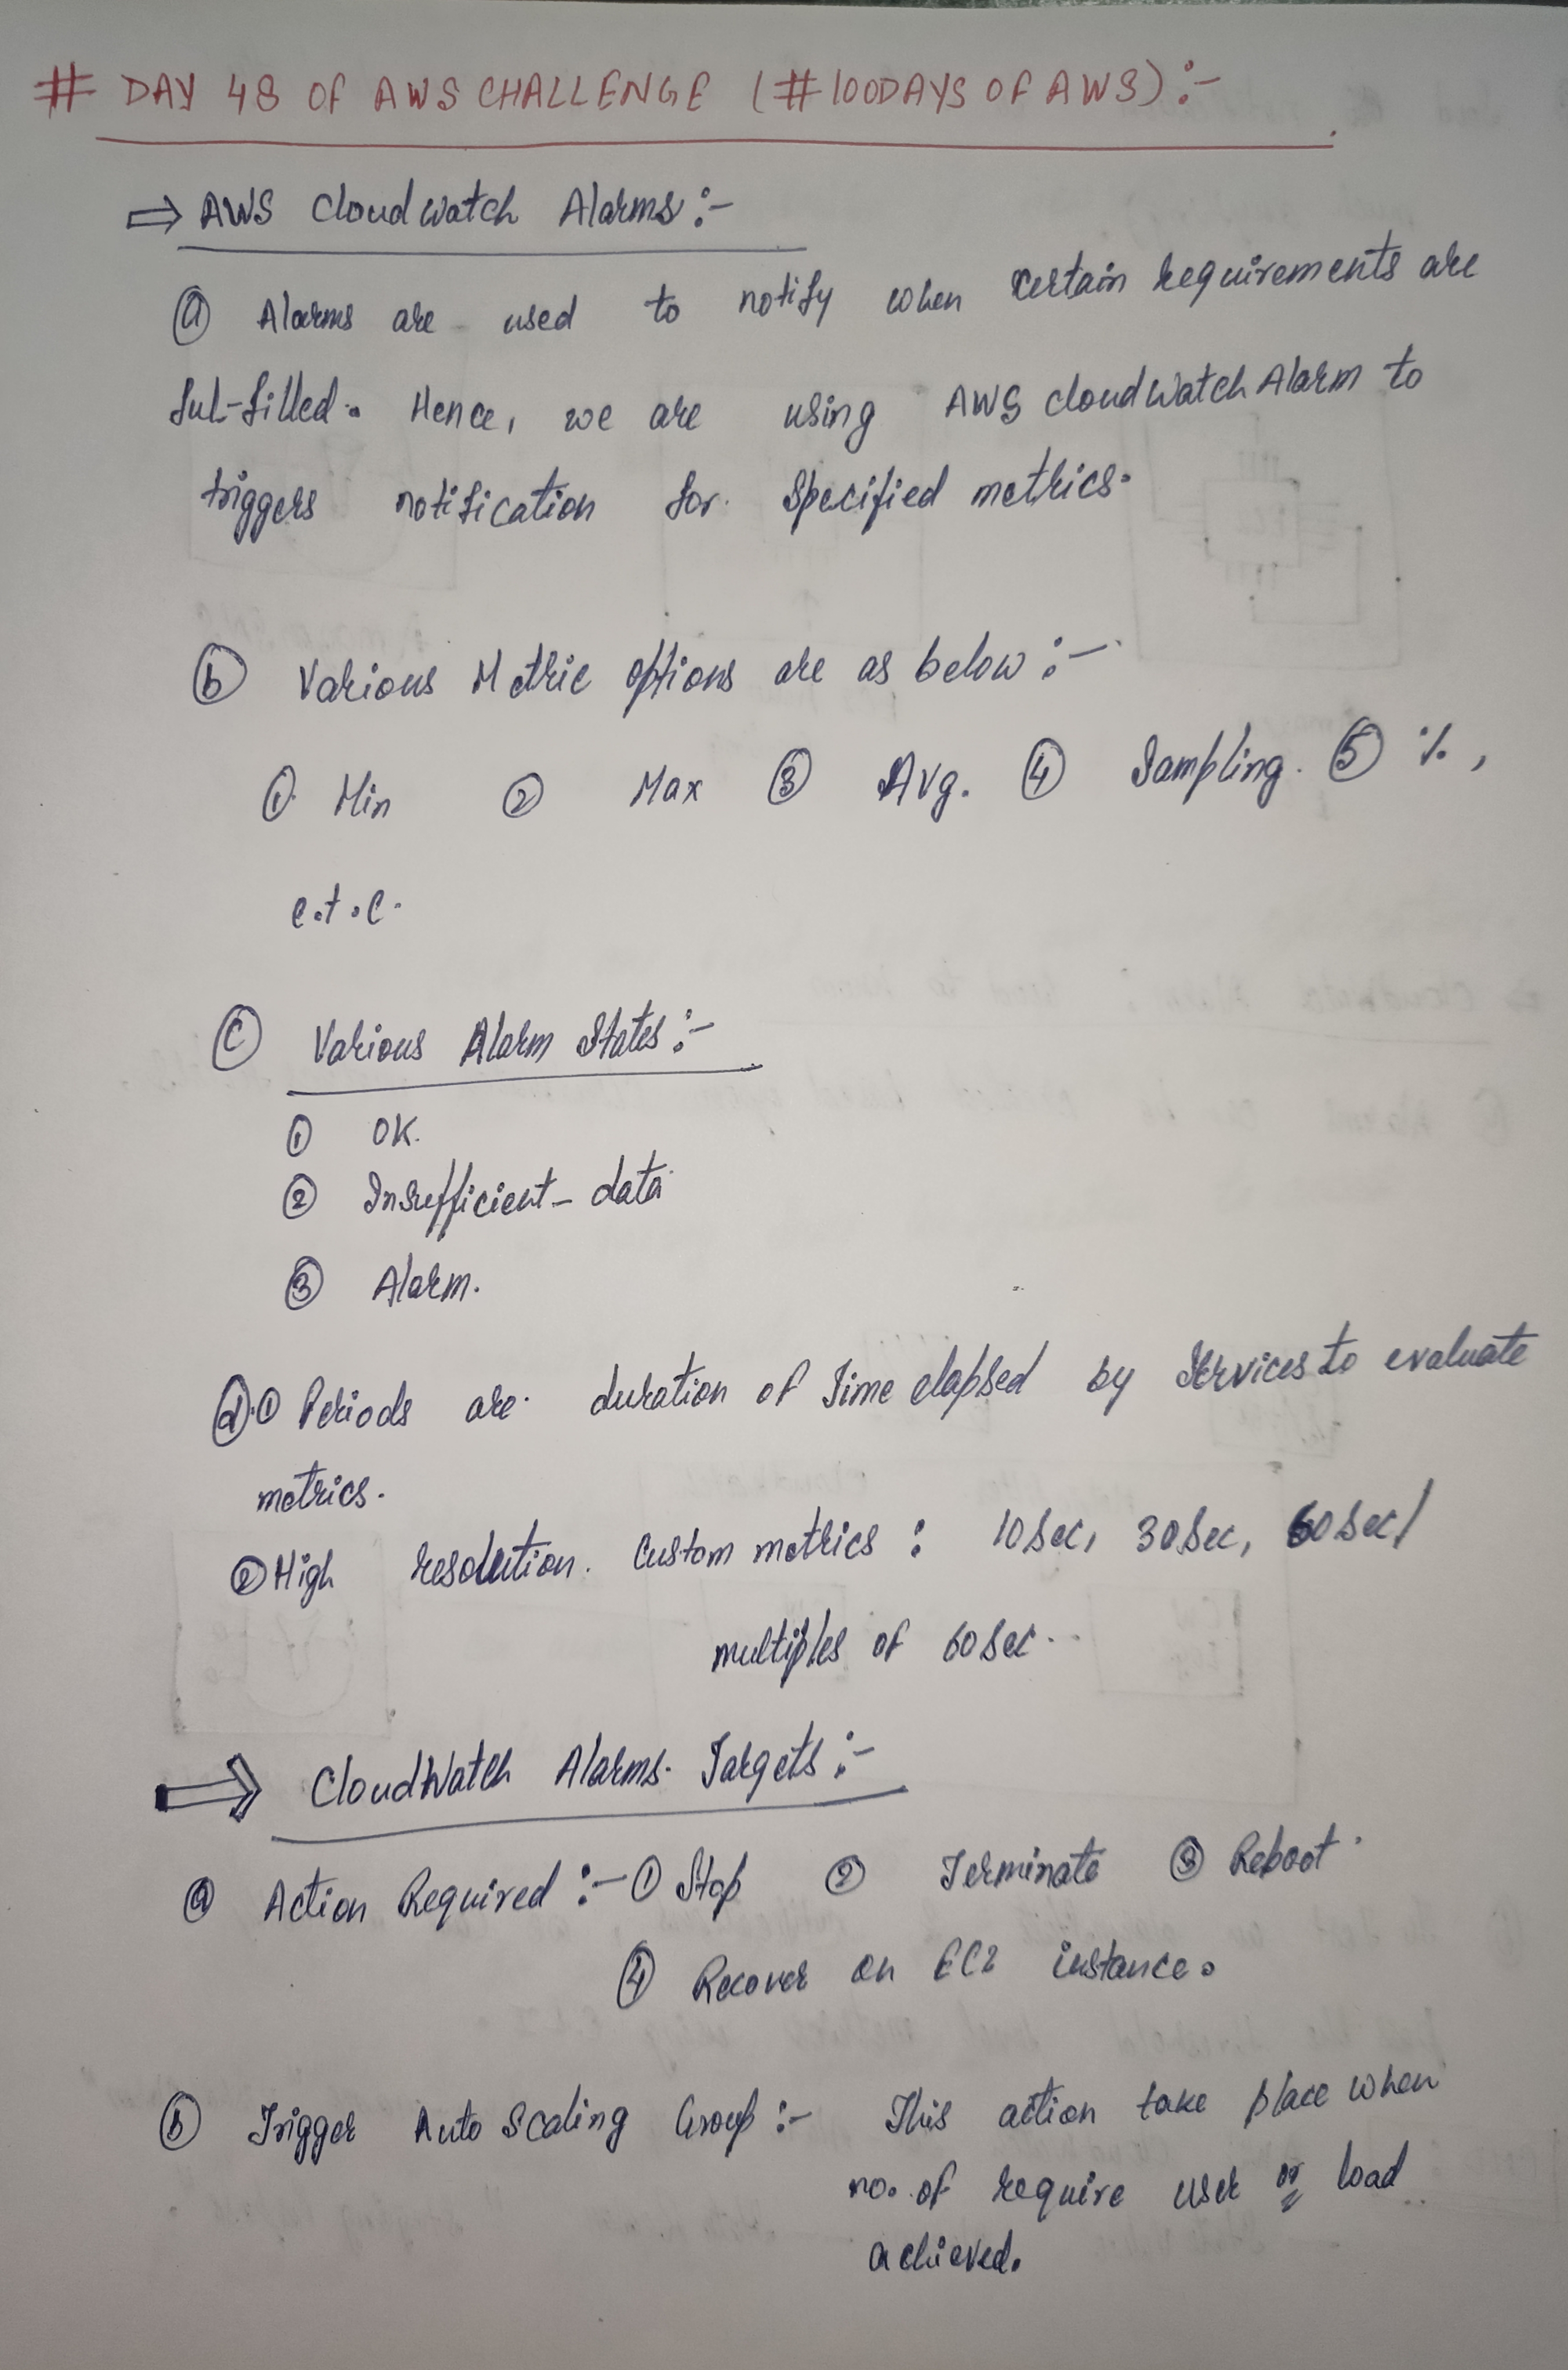 # DAY 48 OF AWS CHALLENGE (#100DAYS OF AWS):-
⇒ AWS Cloud watch Alarms:-
ⓐ Alarms are used to notify when certain requirements are
ful-filled. Hence, we are using AWS cloudWatch Alarm to
triggers notification for specified metrics.
ⓑ Various Metric options are as below:-
① Min ② Max ③ Avg. ④ Sampling. ⑤ %,
e.t.c.
ⓒ Various Alarm States:-
① OK.
② Insufficient-data
③ Alarm.
ⓓ.① Periods are duration of Time elapsed by Services to evaluate
metrics.
② High resolution. Custom metrics : 10 sec, 30 sec, 60 sec/
multiples of 60 sec..
⇒ CloudWatch Alarms. Targets:-
ⓐ Action Required:- ① Stop ② Terminate ③ Reboot.
④ Recover an EC2 instance.
ⓑ Trigger Auto Scaling Group:- This action take place when
no. of require user or load
achieved.